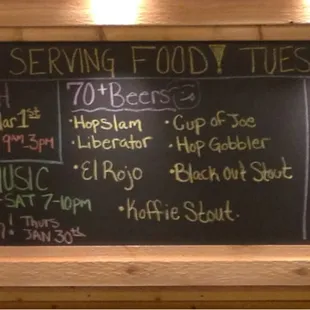 SERVING FOOD! TUES
H
Mar 1st
9am-3pm
MUSIC
-SAT 7-10pm
! THURS
JAN 30th
70+ Beers
• HopSlam
• Liberator
• El Rojo
• Cup of Joe
• Hop Gobbler
• Black Out Stout
• Koffie Stout.